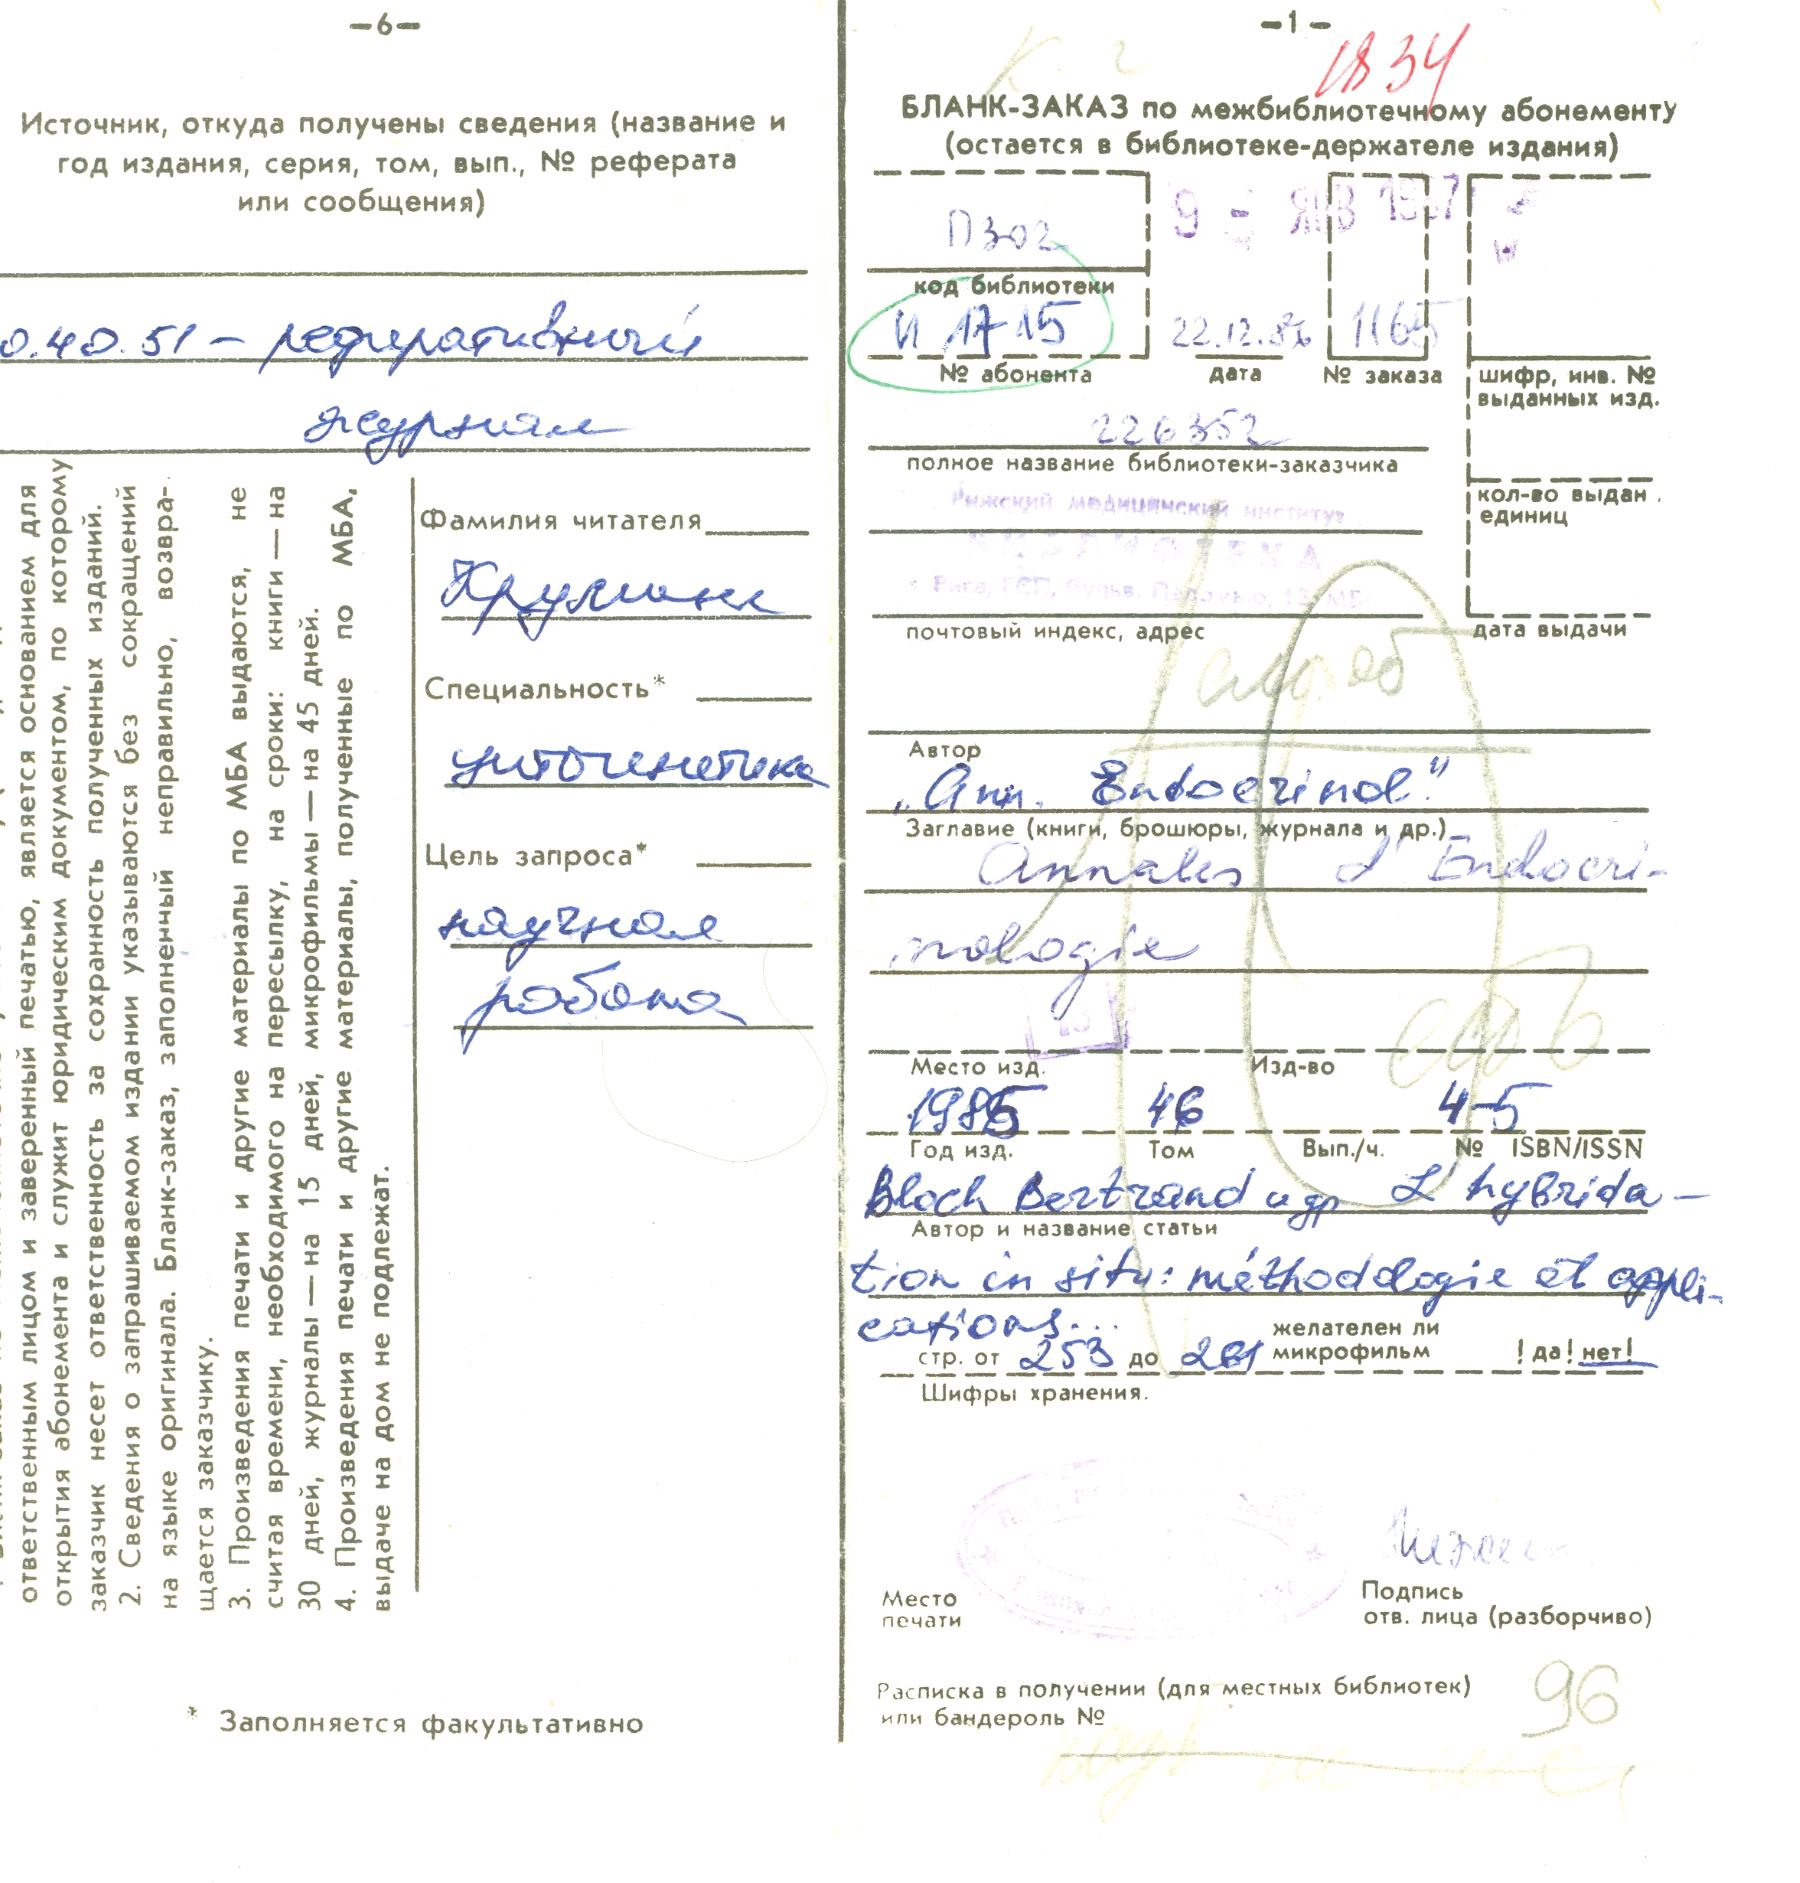 —6—
Источник, откуда получены сведения (название и
год издания, серия, том, вып., № реферата
или сообщения)
0.40.51 – реферативный
журнал
ответственным лицом и заверенный печатью, является основанием для
открытия абонемента и служит юридическим документом, по которому
заказчик несет ответственность за сохранность полученных изданий.
2. Сведения о запрашиваемом издании указываются без сокращений
на языке оригинала. Бланк-заказ, заполненный неправильно, возвра-
щается заказчику.
3. Произведения печати и другие материалы по МБА выдаются, не
считая времени, необходимого на пересылку, на сроки: книги — на
30 дней, журналы — на 15 дней, микрофильмы — на 45 дней.
4. Произведения печати и другие материалы, полученные по МБА,
выдаче на дом не подлежат.
Фамилия читателя
Круминь
Специальность*
цитогенетика
Цель запроса*
научная
работа
* Заполняется факультативно
—1—
1834
БЛАНК-ЗАКАЗ по межбиблиотечному абонементу
(остается в библиотеке-держателе издания)
П302
9 - ЯНВ 1987
код библиотеки
И 1715
22.12.86
1165
№ абонента
дата
№ заказа
шифр, инв. №
выданных изд.
226352
полное название библиотеки-заказчика
кол-во выдан.
единиц
Рижский медицинский институт
БИБЛИОТЕКА
г. Рига, ГСП, бульв.
почтовый индекс, адрес
дата выдачи
Автор
„Ann. Endocrinol."
Заглавие (книги, брошюры, журнала и др.)
Annales d'Endocri-
nologie
Место изд.
Изд-во
1985
46
4-5
Год изд.
Том
Вып./ч.
№ ISBN/ISSN
Bloch Bertrand и др L'hybrida-
Автор и название статьи
tion in situ: méthodologie et appli-
cations...
стр. от 253 до 261
желателен ли
микрофильм
! да! нет!
Шифры хранения.
Место
печати
Подпись
отв. лица (разборчиво)
Расписка в получении (для местных библиотек)
или бандероль №
96